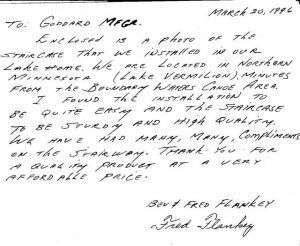 MARCH 20, 1996
TO: GODDARD MFGR.
ENCLOSED IS A PHOTO OF THE
STAIRCASE THAT WE INSTALLED IN OUR
LAKE HOME. WE ARE LOCATED IN NORTHERN
MINNESOTA (LAKE VERMILION), MINUTES
FROM THE BOUNDARY WATERS CANOE AREA.
I FOUND THE INSTALLATION TO
BE QUITE EASY AND THE STAIRCASE
TO BE STURDY AND HIGH QUALITY.
WE HAVE HAD MANY, MANY, COMPLIMENTS
ON THE STAIRWAY. THANK YOU FOR
A QUALITY PRODUCT AT A VERY
AFFORDABLE PRICE.
BEV & FRED FLANKEY
Fred Flankey